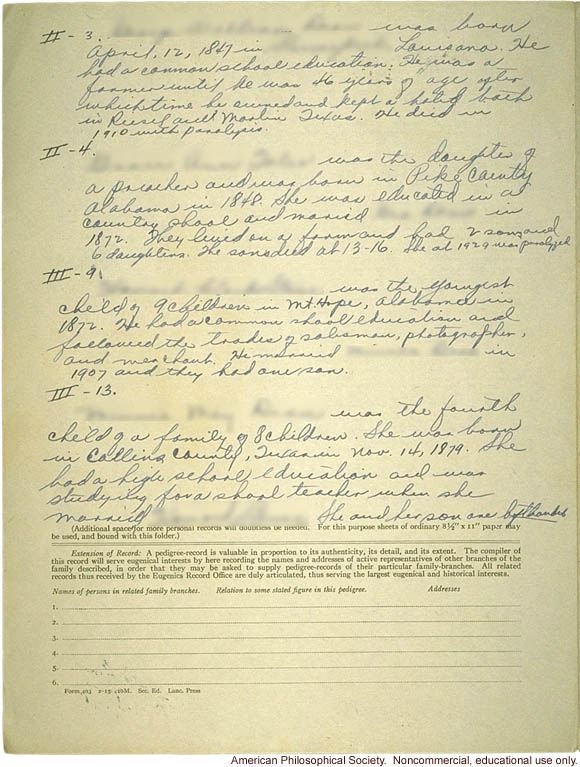 II - 3. was born
April, 12, 1847 in Louisana. He
had a common school education. He was a
farmer until he was 46 years of age after
which time he owned and kept a hotel both
in Riesel and Marlin Texas. He died in
1910 with paralysis.
II - 4.
was the daughter of
a preacher and was born in Pike County
Alabama in 1848. She was educated in a
country shool and married in
1872. They lived on a farm and had 2 sons and
6 daughters. The sons died at 13-16. She at 1929 was paralyzed
III - 9.
was the youngest
child of 9 children in Mt. Hope, Alabama in
1872. He had a common shool education and
followed the trades of salesman, photographer,
and merchant. He married in
1907 and they had one son.
III - 13.
was the fourth
child of a family of 8 children. She was born
in Collins County, Texas in Nov. 14, 1879. She
had a high school education and was
studying for a shool teacher when she
married She and her son are
(Additional space for more personal records will doubtless be needed. For this purpose sheets of ordinary 8½" x 11" paper may
be used, and bound with this folder.)
Extension of Record: A pedigree-record is valuable in proportion to its authenticity, its detail, and its extent. The compiler of
this record will serve eugenical interests by here recording the names and addresses of active representatives of other branches of the
family described, in order that they may be asked to supply pedigree-records of their particular family-branches. All related
records thus received by the Eugenics Record Office are duly articulated, thus serving the largest eugenical and historical interests.
Names of persons in related family branches. Relation to some stated figure in this pedigree. Addresses
1.
2.
3.
4.
5.
6.
Form 403 2-15 Sec. Ed. Lanc. Press
American Philosophical Society. Noncommercial, educational use only.